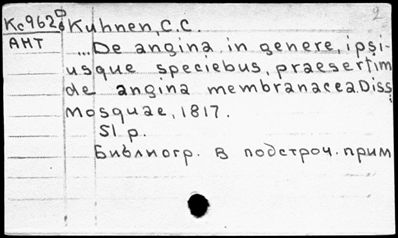 Kc962б Kuhnen, C.C. 2
АНТ
...De angina in genere, ipsi-
usque speciebus, praesertim
de angina membranacea. Diss
Mosquae, 1817.
51 p.
Библиогр. в подстроч. прим